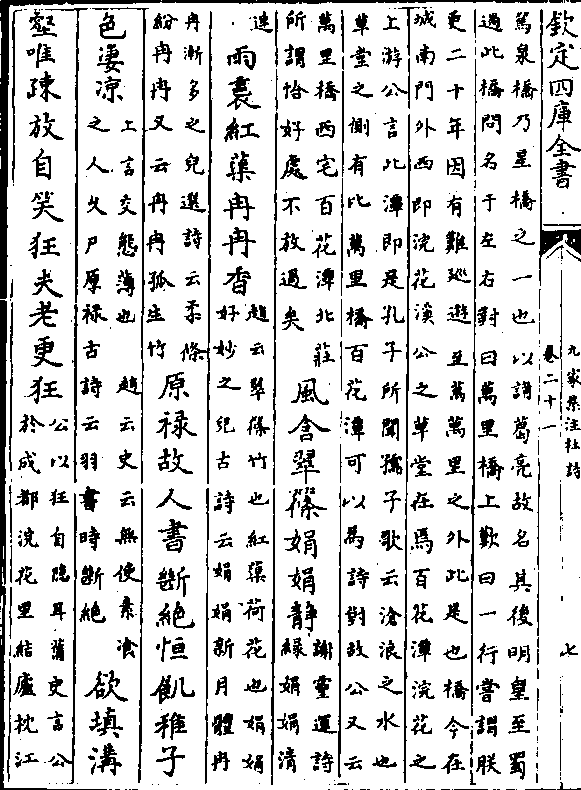 欽定四庫全書
九家集注杜詩
卷二十一
七
篤泉橋乃星橋之一也以諸葛亮故名其後明皇至蜀
過此橋問名于左右對曰萬里橋上歎曰一行嘗謂朕
更二十年因有難巡遊至萬萬里之外此是也橋今在
城南門外西即浣花溪公之草堂在焉百花潭浣花之
上游公言此潭即是孔子所聞孺子歌云滄浪之水也
草堂之側有比萬里橋百花潭可以為詩對故公又云
萬里橋西宅百花潭北莊
所謂恰好處不放過矣
風含翠篠娟娟靜
謝靈運詩
緣娟娟清
連
雨裛紅蕖冉冉香
趙云翠篠竹也紅蕖荷花也娟娟
好妙之皃古詩云娟娟新月體冉
冉漸多之皃選詩云柔條
紛冉冉又云冉冉孤生竹
原禄故人書斷絶恒飢稚子
色淒凉
上言交態薄也 趙云史云無使素飡
之人久尸原禄古詩云羽書時斷絶
欲填溝
壑唯疎放自笑狂夫老更狂
公以狂自隐耳舊史言公
於成都浣花里結廬枕江